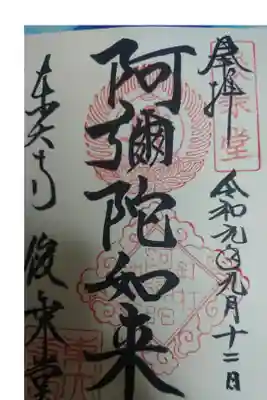 奉拝
令和元年九月十二日
阿彌陀如来
東大寺 俊乗堂